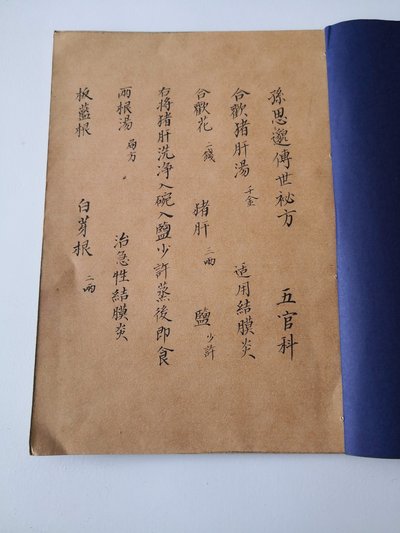 孫思邈傳世祕方　五官科
合歡猪肝湯 千金　适用结膜炎
合歡花 二錢　猪肝 三两　鹽 少許
右将猪肝洗净入碗入鹽少許蒸後即食
两根湯 局方　治急性结膜炎
板藍根　白芽根 二两